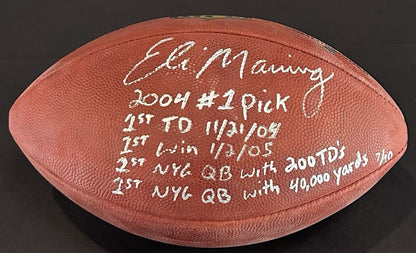 Eli Manning
2004 #1 pick
1ST TD 11/21/04
1ST Win 1/2/05
1ST NYG QB with 200TD's
1ST NYG QB with 40,000 yards 7/10